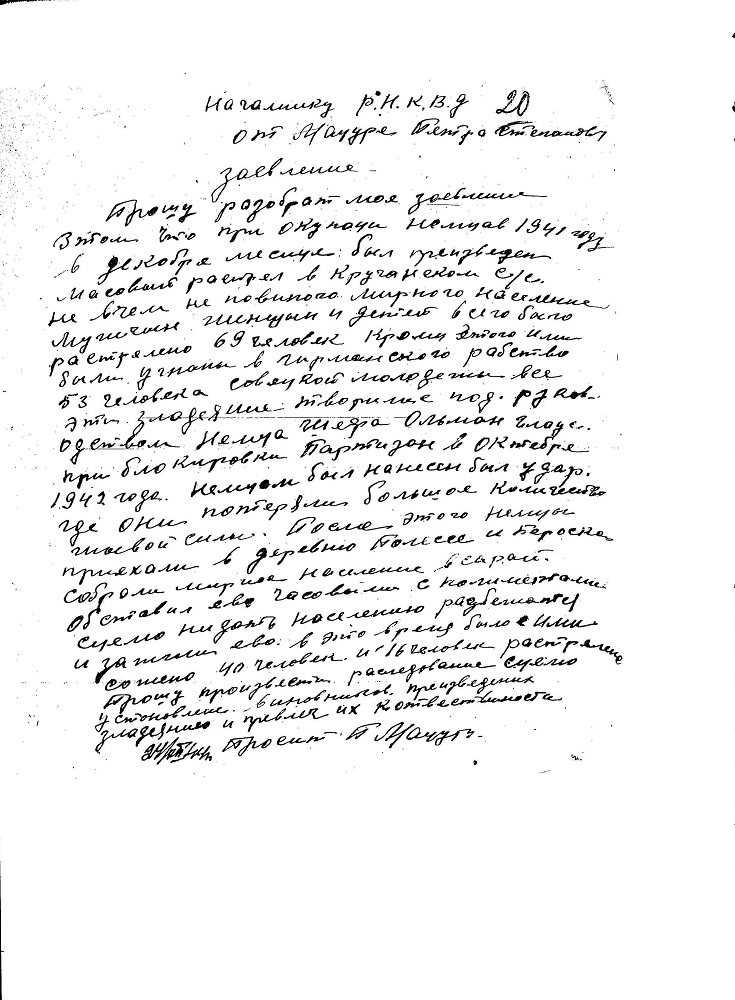 Начальнику Р.Н.К.В.Д 20
от Мачуре Пятра Степанови
заевление
Прошу разобрат мое заевление
Втом что при окупации немцав 1941 году
в декобре месице был преизведен
масовый растрел в Кручанском с/с.
не вчем не повиного мирного население
мужчин женщин и детей всего было
растрелено 69 человек Кроми этого ими
были угнаны в гирманского рабство
53 человека совецкой молодежи все
эти зладеяние творилис под. руков.
одством Немца шефа Ольман
при блокировки Партизан в Октебре
1942 года. Немцам был нанесен был удар.
где они потеряли большое количество
живой силы. После этого немцы
приехали в деревню Полесе и
собрали мирное население в сарай.
Обставил ево часовыми с
сцелю ни дать населению разбежатся
и зажгли ево. в это время было ими
сожено 40 человек и 16 человек растрелено
Прошу произвести раследование сцелю
установлене виновников преизведених
зладеянию и превлеч их котвественности
Просит П Мачуть